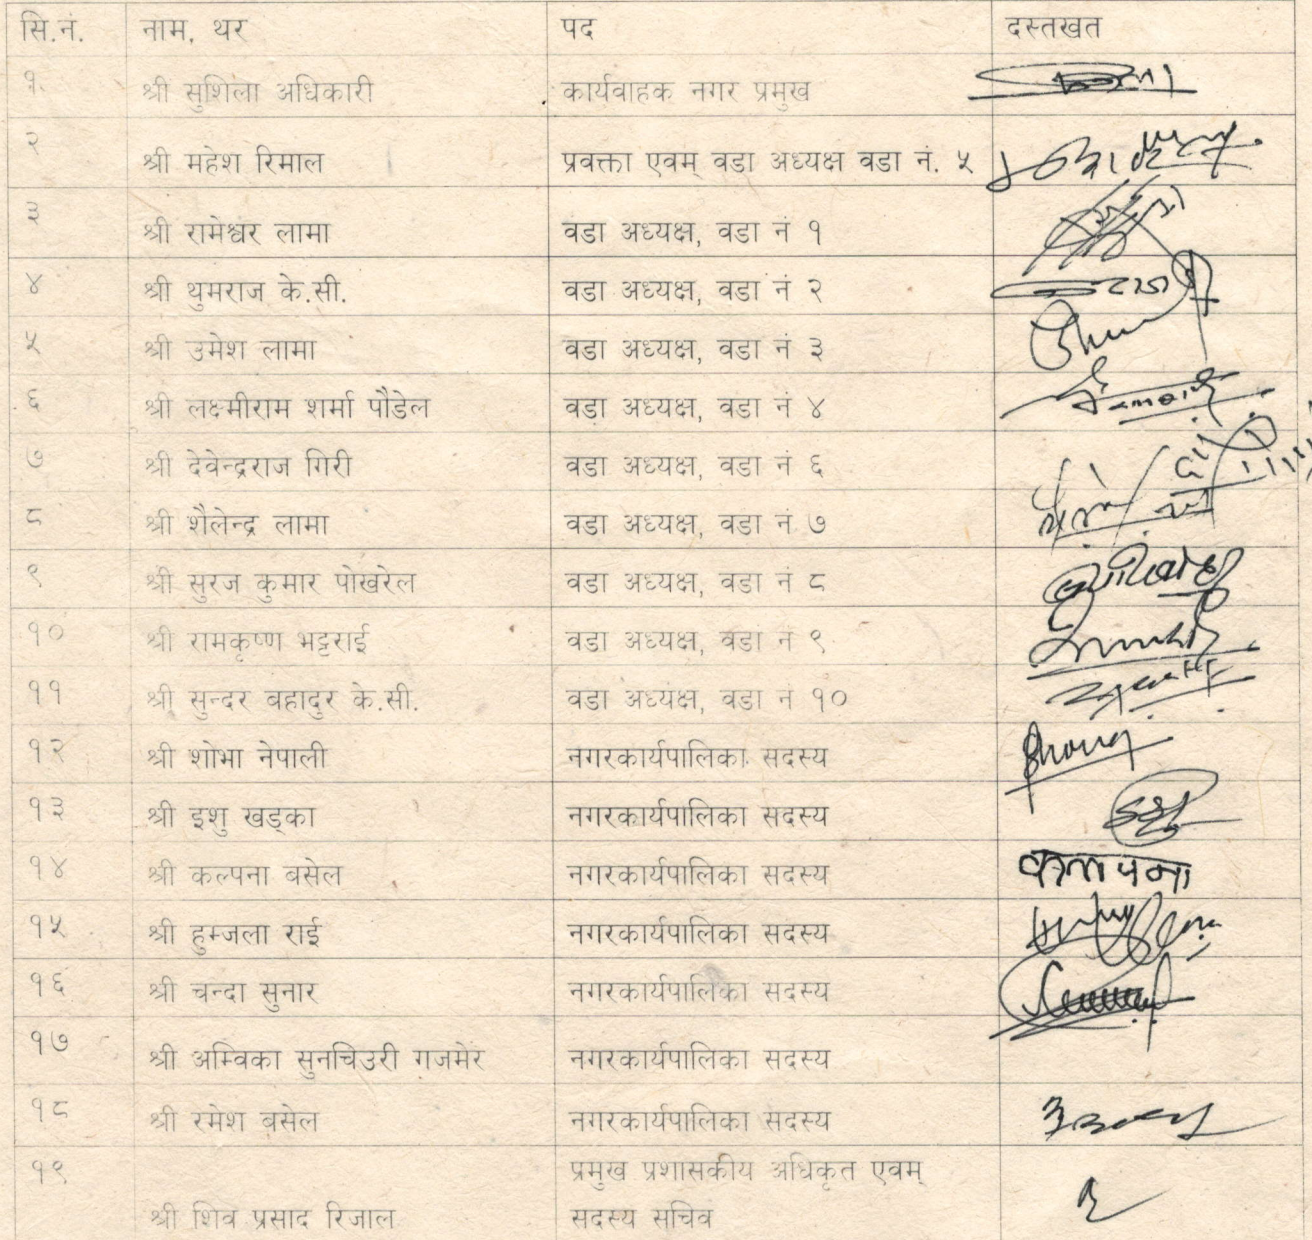 सि.नं. नाम, थर पद दस्तखत
१. श्री सुशिला अधिकारी कार्यवाहक नगर प्रमुख
२ श्री महेश रिमाल प्रवक्ता एवम् वडा अध्यक्ष वडा नं. ५
३ श्री रामेश्वर लामा वडा अध्यक्ष, वडा नं १
४ श्री थुमराज के.सी. वडा अध्यक्ष, वडा नं २
५ श्री उमेश लामा वडा अध्यक्ष, वडा नं ३
६ श्री लक्ष्मीराम शर्मा पौडेल वडा अध्यक्ष, वडा नं ४
७ श्री देवेन्द्रराज गिरी वडा अध्यक्ष, वडा नं ६
८ श्री शैलेन्द्र लामा वडा अध्यक्ष, वडा नं ७
९ श्री सुरज कुमार पोखरेल वडा अध्यक्ष, वडा नं ८
१० श्री रामकृष्ण भट्टराई वडा अध्यक्ष, वडा नं ९
११ श्री सुन्दर बहादुर के.सी. वडा अध्यक्ष, वडा नं १०
१२ श्री शोभा नेपाली नगरकार्यपालिका सदस्य
१३ श्री इशु खड्का नगरकार्यपालिका सदस्य
१४ श्री कल्पना बसेल नगरकार्यपालिका सदस्य कलपना
१५ श्री हुम्जला राई नगरकार्यपालिका सदस्य
१६ श्री चन्दा सुनार नगरकार्यपालिका सदस्य
१७ श्री अम्विका सुनचिउरी गजमेर नगरकार्यपालिका सदस्य
१८ श्री रमेश बसेल नगरकार्यपालिका सदस्य
१९ प्रमुख प्रशासकीय अधिकृत एवम्
श्री शिव प्रसाद रिजाल सदस्य सचिव